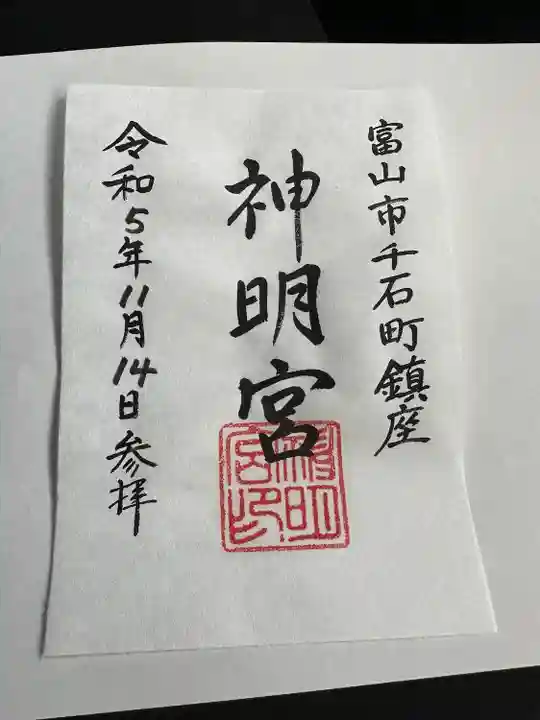 富山市千石町鎮座
神明宮
神明宮印
令和5年11月14日参拝